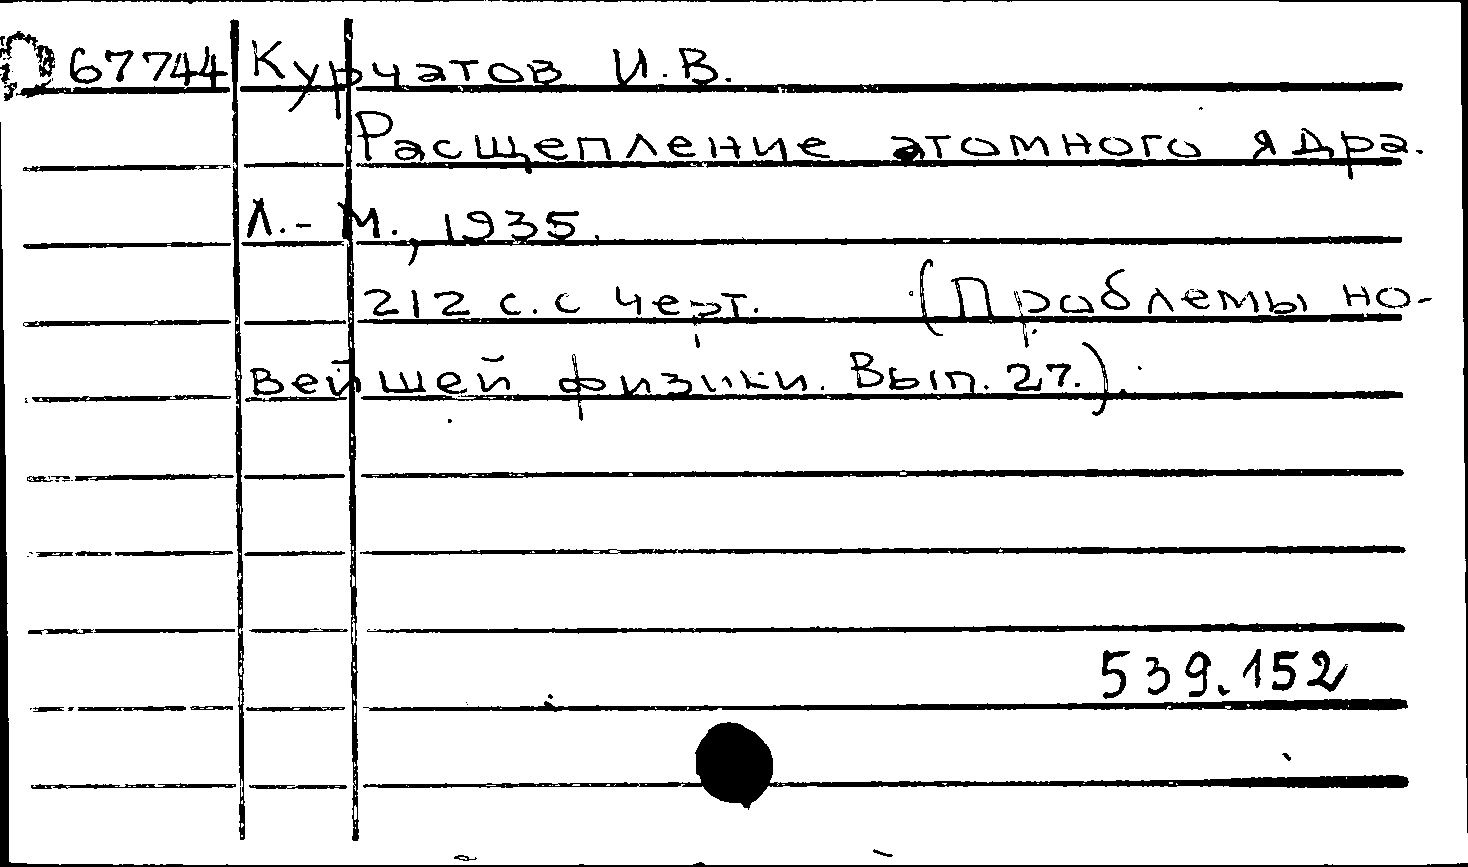 D 67744 Курчатов И.В.
Расщепление атомного ядра.
Л.-М., 1935.
212 с. с черт. (Проблемы но-
вейшей физики. Вып. 27.).
539.152